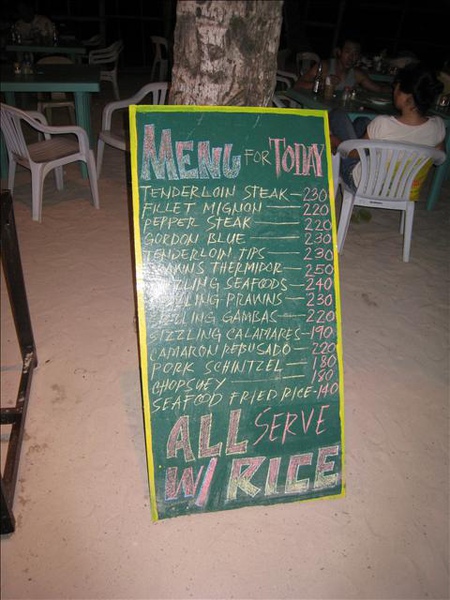 MENU FOR TODAY
TENDERLOIN STEAK-230
FILLET MIGNON-220
PEPPER STEAK-220
GORDON BLUE-230
TENDERLOIN TIPS-230
THERMIDOR-250
SEAFOODS-240
PRAWNS-230
GAMBAS-220
SIZZLING CALAMARES-190
CAMARON REBUSADO-220
PORK SCHINTZEL-180
CHOPSUEY-180
SEAFOOD FRIED RICE-140
ALL SERVE
W/ RICE